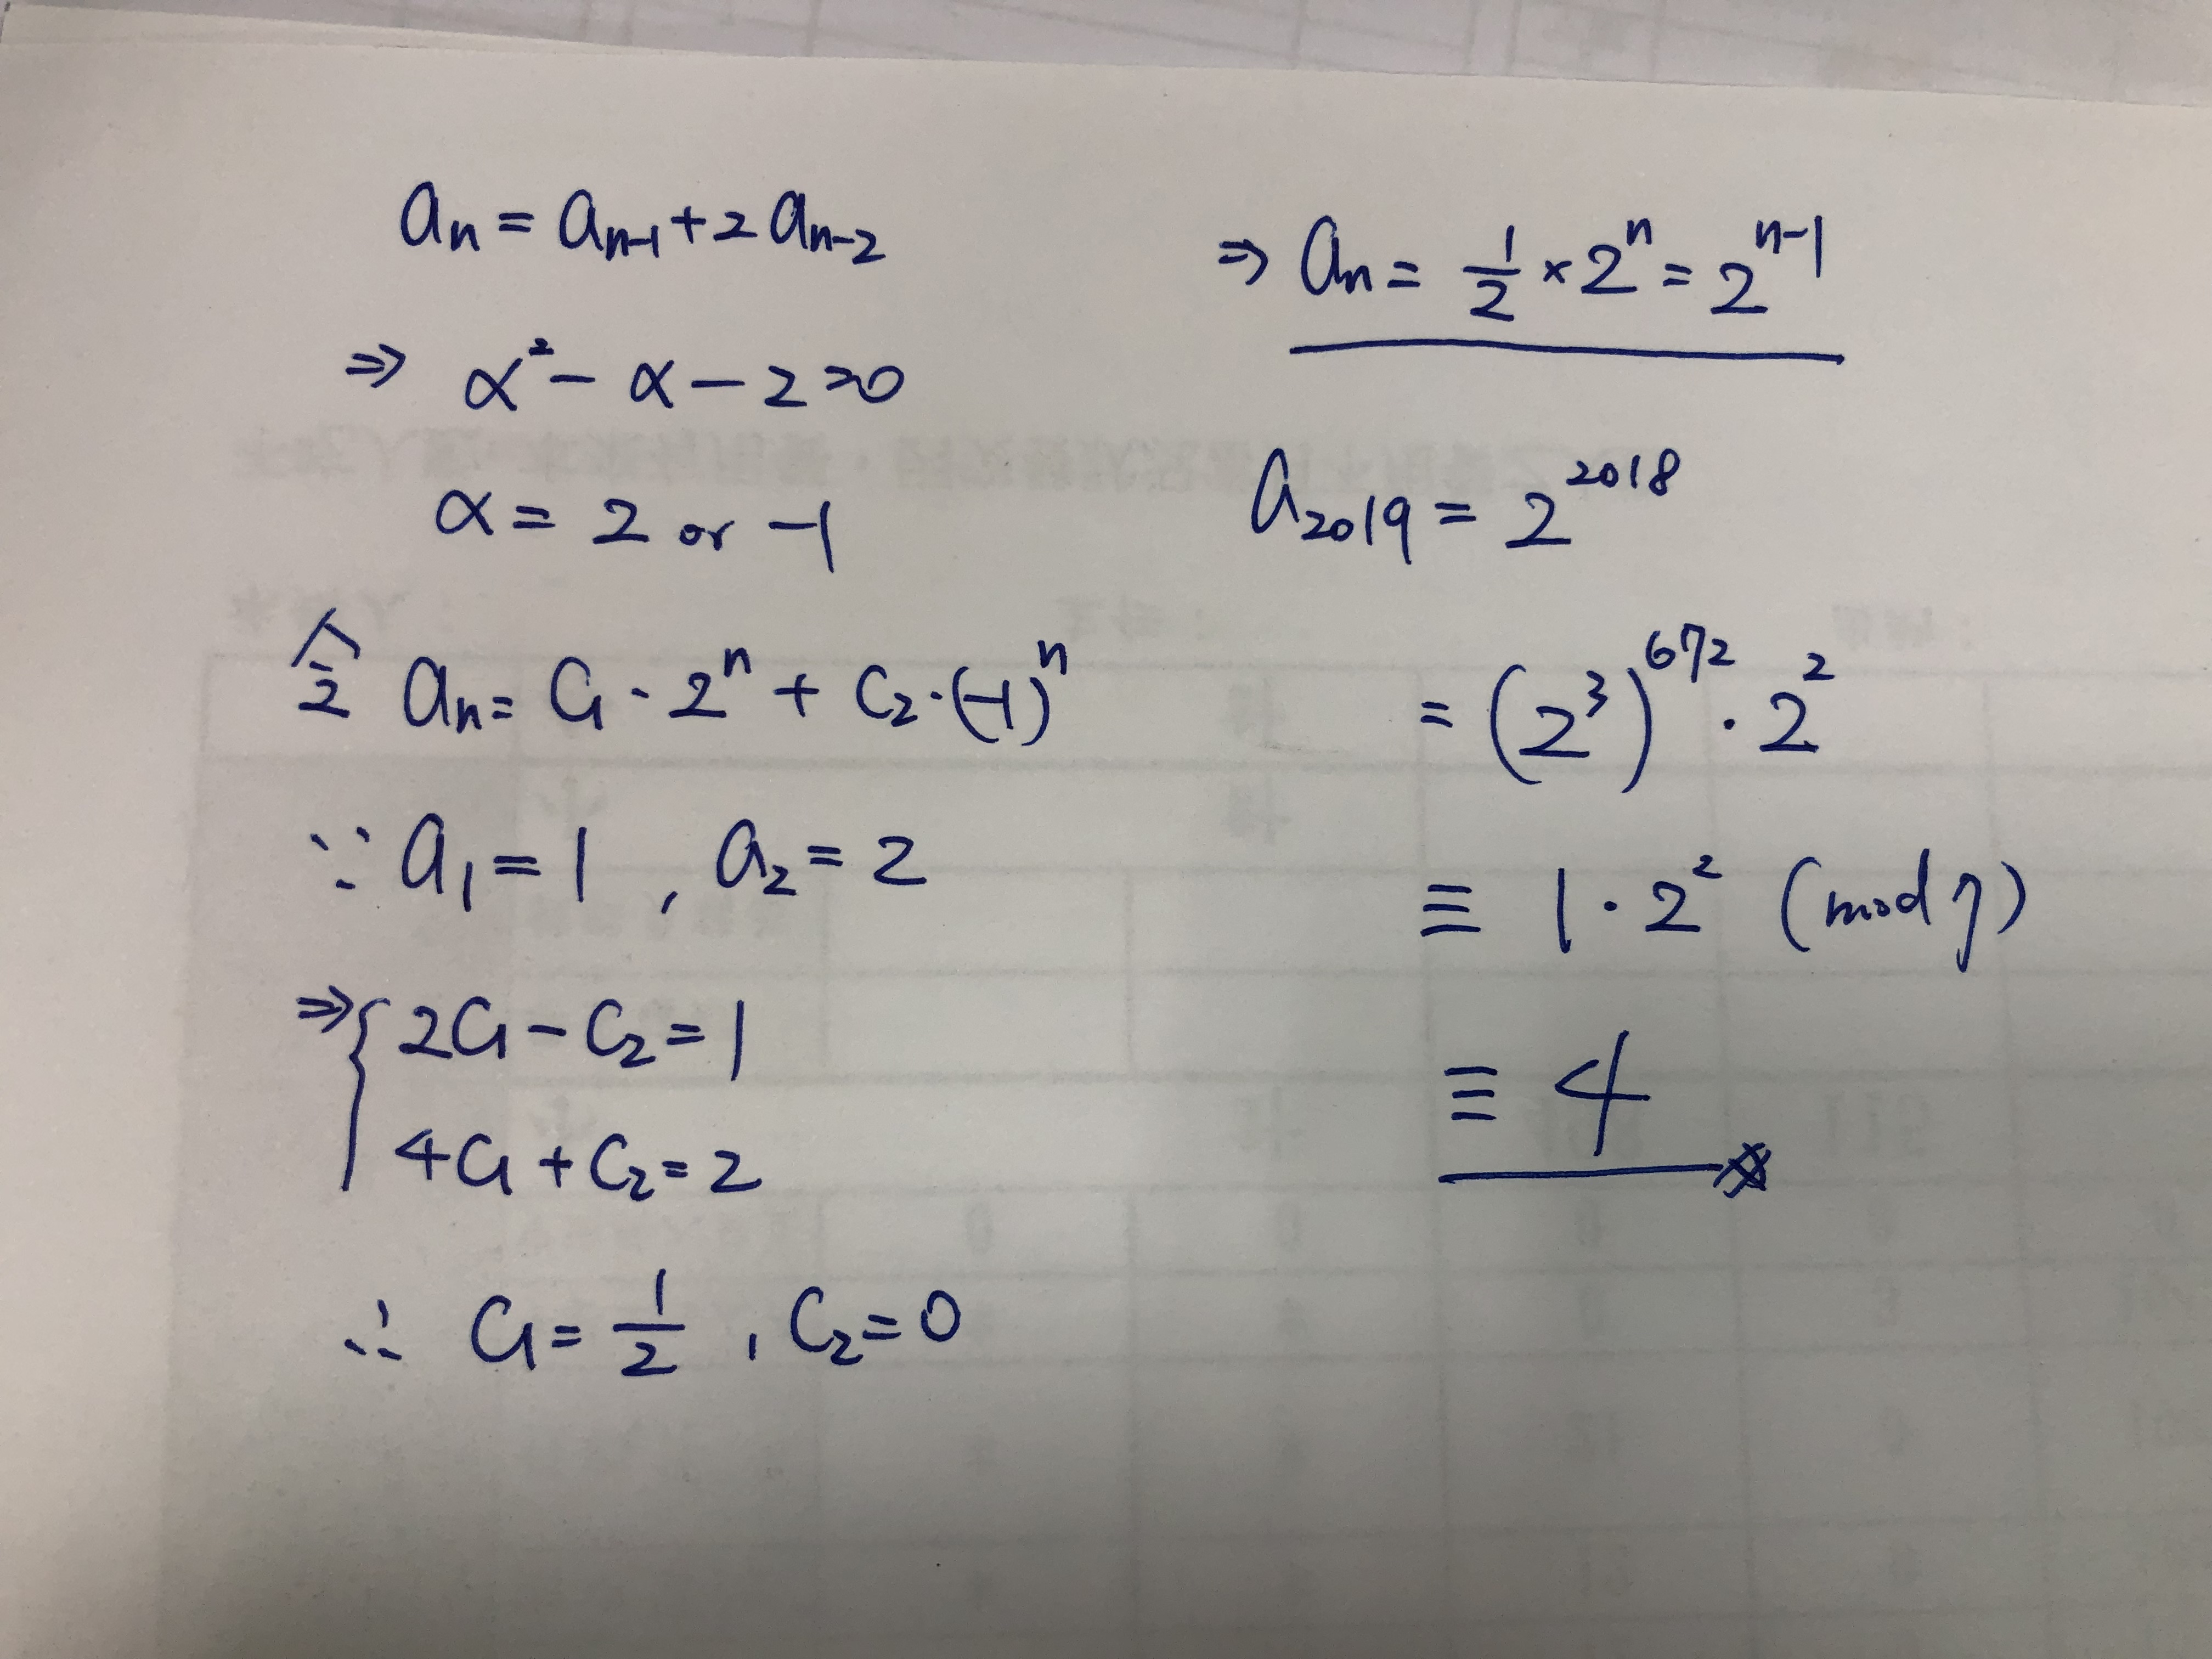 aₙ = aₙ₋₁ + 2aₙ₋₂
⇒ α² - α - 2 = 0
α = 2 or -1
令 aₙ = C₁ · 2ⁿ + C₂ · (-1)ⁿ
∵ a₁ = 1 , a₂ = 2
⇒ { 2C₁ - C₂ = 1
4C₁ + C₂ = 2
∴ C₁ = 1/2 , C₂ = 0
⇒ aₙ = 1/2 × 2ⁿ = 2ⁿ⁻¹
a₂₀₁₉ = 2²⁰¹⁸
= (2³)⁶⁷² · 2²
≡ 1 · 2² (mod 7)
≡ 4